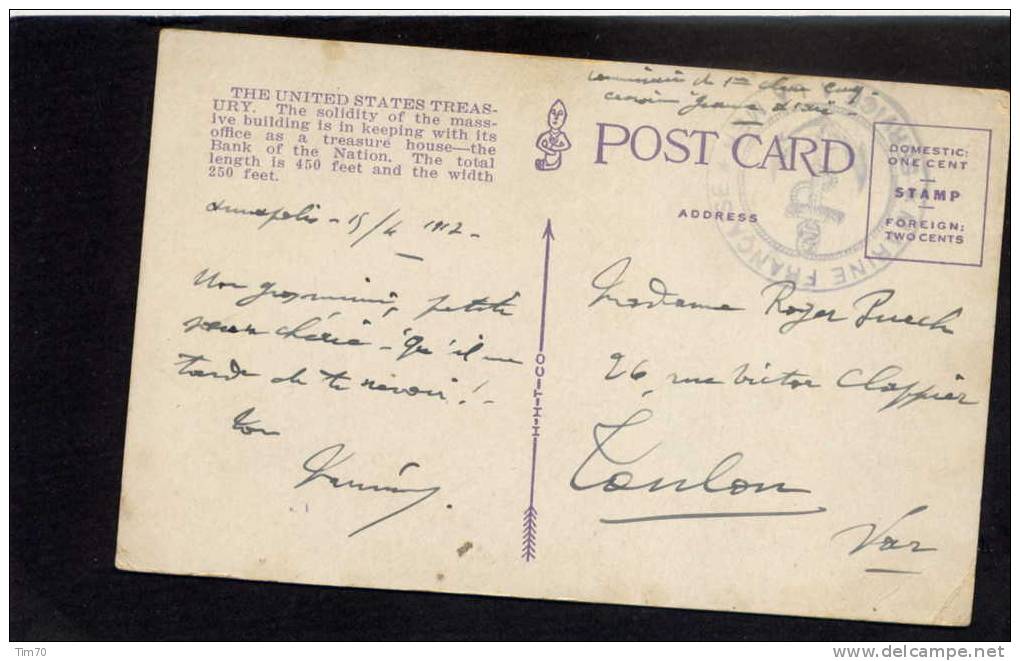 THE UNITED STATES TREAS-
URY. The solidity of the mass-
ive building is in keeping with its
office as a treasure house—the
Bank of the Nation. The total
length is 450 feet and the width
250 feet.
Annapolis - 15/4 1912 -
petite
soeur chérie - Qu'il me
tarde de te revoir! -
Ton
H-H-T-CO
de 1ère classe
POST CARD
ADDRESS
DOMESTIC:
ONE CENT
STAMP
FOREIGN:
TWO CENTS
MARINE FRANÇAISE
Madame Roger Puech
26, rue Victor Clappier
Toulon
Var
Tim70
delcampe.net